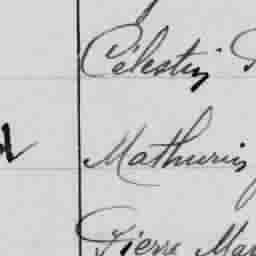 Célestin
Mathurin
Pierre Mar